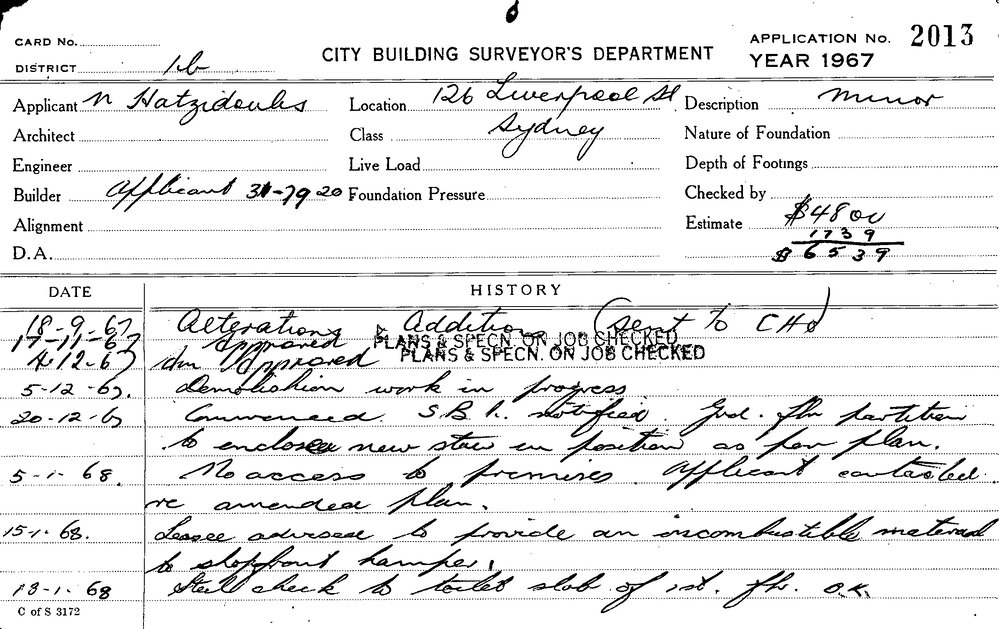 CARD No.
DISTRICT 1b
CITY BUILDING SURVEYOR'S DEPARTMENT
APPLICATION No. 2013
YEAR 1967
Applicant N Hatzidoulis Location 126 Liverpool St Description Minor
Architect Class Sydney Nature of Foundation
Engineer Live Load Depth of Footings
Builder Applicant 31-79 20 Foundation Pressure Checked by
Alignment Estimate $4800
1739
D.A. $6539
DATE HISTORY
18-9-67 Alterations & Additions (sent to CHO)
17-11-67 Approved PLANS & SPECN. ON JOB CHECKED
4.12.67 Am Approved PLANS & SPECN. ON JOB CHECKED
5-12-67. Demolishion work in progress
20-12-67 Commenced. S.B.I. notified. Grd. flr partition
to enclose new stair in position as per plan.
5-1-68. No access to premises. Applicant contacted
re amended plan.
15-1-68. Lessee advised to provide an incombustible material
to shopfront hamper.
18-1-68 Steel check to toilet slab of 1st. flr. O.K.
C of S 3172